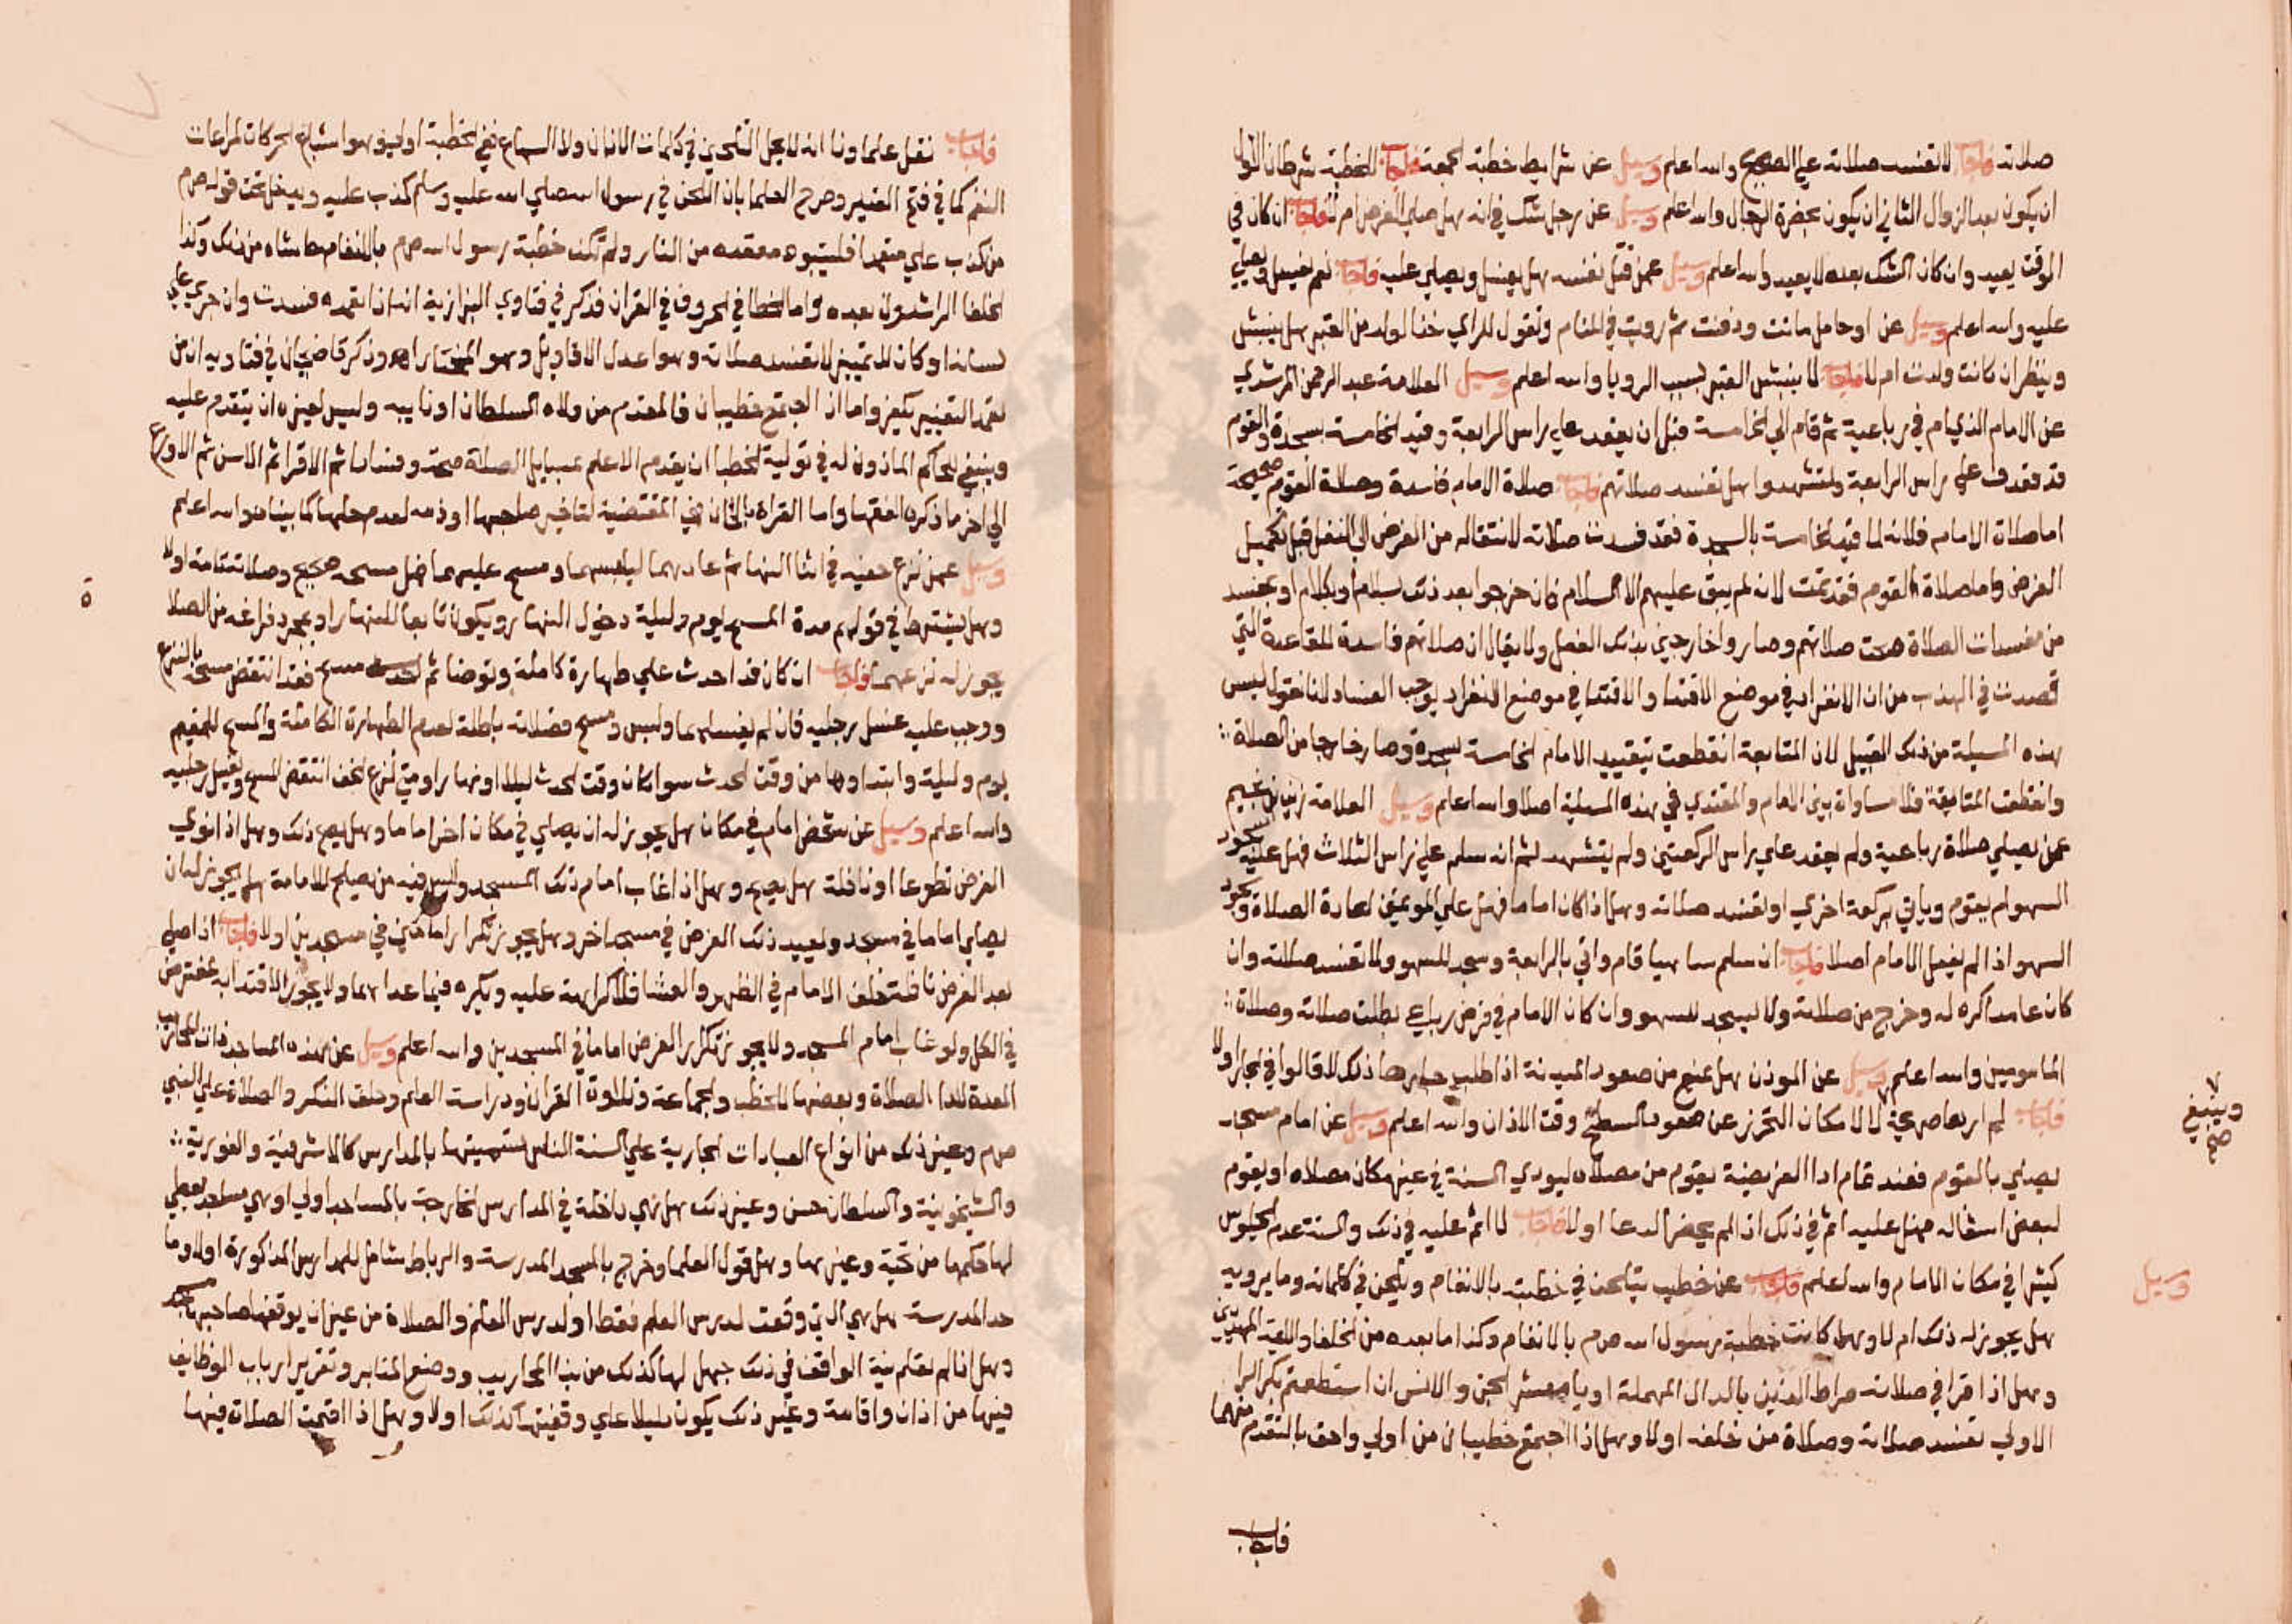 صلاته فاجاب لا تفسد صلاته علي الصحيح والله اعلم وسيل عن شرايط خطبة الجمعة فاجاب للخطبة شرطان الاول
ان يكون بعد الزوال الثاني ان يكون بحضرة الرجال والله اعلم وسيل عن رجل شك في انه هل صلي الفرض ام لا فاجاب ان كان في
الوقت يعيد وان كان الشك بعده لا يعيد والله اعلم وسيل عمن قتل نفسه هل يغسل ويصلي عليه فاجاب نعم يغسل ويصلي
عليه والله اعلم وسيل عن اوحامل ماتت ودفنت ثم رويت في المنام وتقول للراي خذ الولد من القبر هل ينبش
وينظر ان كانت ولدت ام لا فاجاب لا ينبش القبر بسبب الرويا والله اعلم وسيل العلامة عبد الرحمن المرشدي
عن الامام الذي ام في رباعية ثم قام الي الخامسة قبل ان يقعد علي راس الرابعة وقيد الخامسة بسجدة والقوم
قد قعدت علي راس الرابعة وتشهدوا هل تفسد صلاتهم فاجاب صلاة الامام فاسدة وصلاة القوم صحيحة
اما صلاة الامام فلانه لما قيد الخامسة بالسجدة فقد فسدت صلاته لانتقاله من الفرض الي النفل قبل تكميل
الفرض واما صلاة القوم فقد تمت لانه لم يبق عليهم الا السلام فان خرجوا بعد ذلك بسلام او بكلام او بمفسد
من مفسدات الصلاة صحت صلاتهم وصاروا خارجين بذلك الفعل ولا يقال ان صلاتهم فاسدة للقاعدة التي
قصدت في المذهب من ان الانفراد في موضع الاقتدا والاقتدا في موضع الانفراد يوجب الفساد لانا نقول ليس
هذه المسيلة من ذلك القبيل لان المتابعة انقطعت بتقييد الامام الخامسة بسجدة وصار خارجا من الصلاة
وانقطعت المتابعة فلا مساواة بين الامام والمقتدي في هذه المسيلة اصلا والله اعلم وسيل العلامة زين بن نجيم
عمن يصلي صلاة رباعية ولم يقعد علي راس الركعتين ولم يتشهد ثم انه سلم علي راس الثلاث فهل عليه سجود
السهو ام يقوم وياتي بركعة اخري او تفسد صلاته وهل اذا كان اماما فهل علي الموتمين اعادة الصلاة وسجود
السهو اذا لم يفعل الامام اصلا فاجاب ان سلم ساهيا قام واتي بالرابعة وسجد للسهو ولا تفسد صلاته وان
كان عامدا كره له وخرج من صلاته ولا يسجد للسهو وان كان الامام في فرض رباعي بطلت صلاته وصلاة
المامومين والله اعلم وسيل عن الموذن هل يمنع من صعود المئذنة اذا طلب جارها ذلك لاقالوا في الجار اولا
فاجاب لم ار بها صريحة لا لامكان التحرز عن صعود السطح وقت الاذان والله اعلم وسيل عن امام مسجد
يصلي بالقوم فعند تمام ادا الفريضة يقوم من مصلاه ليودي السنة في غير مكان مصلاه او يقوم
لبعض اشغاله فهل عليه اثم في ذلك اذا لم يحضر الدعا اولا فاجاب لا اثم عليه في ذلك والسنة عدم الجلوس
كثيرا في مكان الامام والله اعلم فاجاب عن خطيب يتلحن في خطبته بالانغام ويلحن في كلماته وما يرويه
هل يجوز له ذلك ام لا وهل كانت خطبة رسول الله صم بالانغام وكذا ما بعده من الخلفا والايمة المهديين
وهل اذا قرا في صلاته صراط الذين بالدال المهملة او يا معشر الجن والانس ان استطعتم بكر الرا
الاولي تفسد صلاته وصلاة من خلفه اولا وهل اذا اجتمع خطيبان من اولي واحق بالتقدم منهما
وينبغي
صح
وسيل
فاجاب
فاجاب نقل علماونا انه لا يحل التلحين في كلمات الاذان ولا السماع ففي الخطبة اولي وهو اشباع الحركات لمراعات
النغم كما في فتح القدير وصرح العلما بان اللحن في رسول الله صلي الله عليه وسلم كذب عليه ويدخل تحت قوله صم
من كذب علي متعمدا فليتبوء مقعده من النار ولم تكن خطبة رسول الله صم بالانغام حاشاه من ذلك وكذا
الخلفا الراشدون بعده واما الخطا في الحروف في القران فذكر في فتاوي البزازية انه ان تعمده فسدت وان جري علي
لسانه او كان لا يميز لا تفسد صلاته وهو اعدل الاقاويل وهو المختار اه وذكر قاضيخان في فتاويه ان من
تعمد التغيير يكفر واما ان اجتمع خطيبان فالمقدم من ولاه السلطان او نايبه وليس لغيره ان يتقدم عليه
وينبغي للحاكم الماذون له في تولية الخطبا ان يقدم الاعلم بمسايل الصلاة صحة وفسادا ثم الاقرا ثم الاسن ثم الاورع
الي اخر ما ذكره الفقها واما القراة بالالحان فهي المقتضية لتاخير صاحبها او ذمه لعدم حلها كما بيناه والله اعلم
وسيل عمن نزع خفيه في اثنا النهار ثم عاد بهما لبسهما ومسح عليهما فهل مسحه صحيح وصلاته تامة اولا
وهل يشترط في قولهم مدة المسح يوم وليلة دخول النهار ويكون تابعا للنهار او بمجرد فراغه من الصلا
يجوز له نزعهما فاجاب ان كان قد احدث علي طهارة كاملة وتوضا ثم مسح فقد انتقض مسحه بالنزع
ووجب عليه غسل رجليه فان لم يغسلهما ولبس ومسح فصلاته باطلة لعدم الطهارة الكاملة والمسح للمقيم
يوم وليلة وابتداوها من وقت الحدث سوا كان وقت الحدث ليلا او نهارا ومتي نزع الخف انتقض المسح وغسل رجليه
والله اعلم وسيل عن شخص امام في مكان هل يجوز له ان يصلي في مكان اخر اماما وهل يصح ذلك وهل اذا نوي
الفرض تطوعا او نافلة هل يصح وهل اذا غاب امام ذلك المسجد وليس فيه من يصلح للامامة هل يجوز له ان
يصلي اماما في مسجد ويعيد ذلك الفرض في مسجد اخر وهل يجوز تكرار امامتين في مسجدين اولا فاجاب اذا صلي
بعد الفرض نافلة خلف الامام في الظهر والعشا فلا كراهة عليه ويكره فيما عداهما ولا يجوز الاقتدا به بمفترض
في الكل ولو غاب امام المسجد ولا يجوز تكرير الفرض اماما في المسجدين والله اعلم وسيل عن هذه المساجد ذات المحاريب
المعدة لادا الصلاة وبعضها للخطب والجماعة وتلاوة القران ودراسة العلم وحلق الذكر والصلاة علي النبي
صم وغير ذلك من انواع العبادات الجارية علي السنة الناس تسميتها بالمدارس كالاشرفية والغورية
والشيخونية والسلطان حسن وغير ذلك هل هي داخلة في المدارس الخارجة بالمساجد اولي او هي مساجد يعطي
لها حكمها من تحية وغيرها وهل قول العلما وخرج بالمسجد المدرسة والرباط شامل للمدارس المذكورة اولا وما
حد المدرسة هل هي التي وقعت لدرس العلم فقط او لدرس العلم والصلاة من غير ان يوقفها صاحبها مسجد
وهل اذا لم تعلم نية الواقف في ذلك جهل لها كذلك من بنا المحاريب ووضع المنابر وتقرير ارباب الوظايف
فيها من اذان واقامة وغير ذلك يكون دليلا علي وقفيتها كذلك اولا وهل اذا اقيمت الصلاة فيها